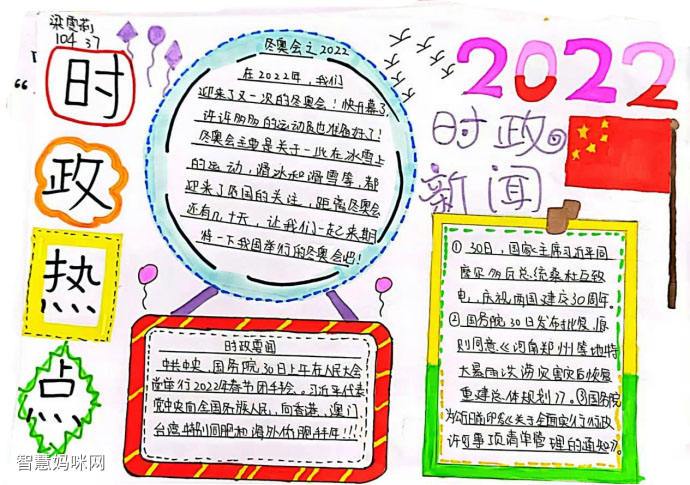 梁雯莉
104 37
时
政
热
点
冬奥会之2022
在2022年，我们
迎来了又一次的冬奥会！快开幕了，
许许多多的运动员也准备好了！
冬奥会主要是关于一些在冰雪上
的运动，滑冰和滑雪等，都
迎来了各国的关注，距离冬奥会
还有几十天，让我们一起来期
待一下我国举行的冬奥会吧！
2022
时政
新闻
时政要闻
中共中央、国务院30日上午在人民大会
堂举行2022年春节团拜会。习近平代表
党中央向全国各族人民，向香港、澳门、
台湾 同胞和海外侨胞拜年!!!
①30日，国家主席习近平同
摩尔多瓦总统桑杜互致
电，庆祝两国建交30周年。
②国务院30日发布批复，原
则同意《河南郑州等地特
大暴雨洪涝灾害灾后恢复
重建总体规划》。③国务院
办公厅日前印发《关于全面实行行政
许可事项清单管理的通知》。
智慧妈咪网